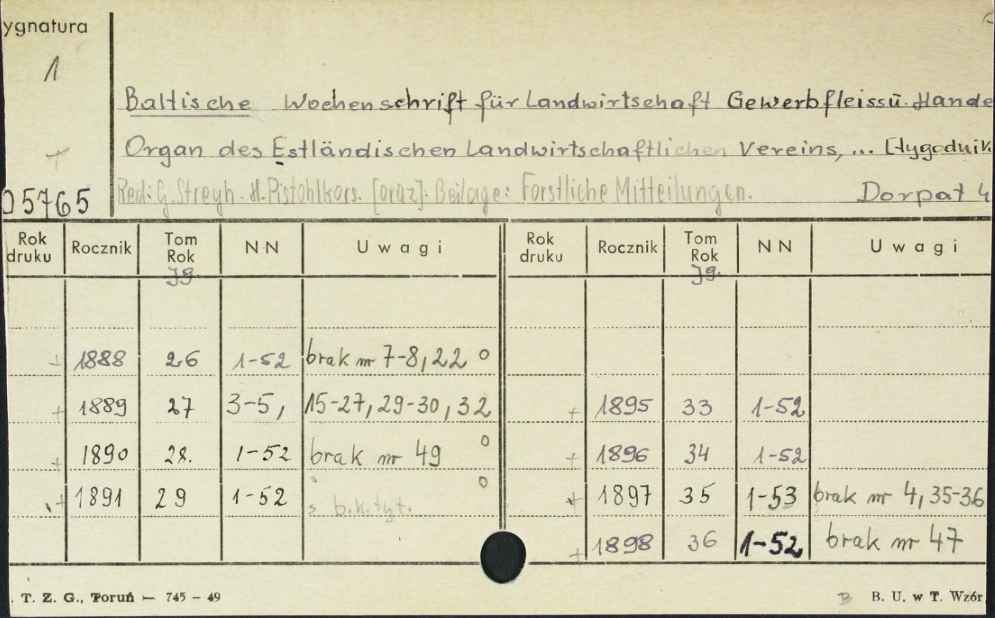 ygnatura
1
Baltische Wochenschrift für Landwirtschaft Gewerbfleiss u. Hande
Organ des Estländischen Landwirtschaftlichen Vereins, ... [Tygodnik
05765 Red: G. Stryk. H. Pistohlkors. [oraz]. Beilage: Forstliche Mitteilungen. Dorpat 4
Rok druku Rocznik Tom Rok Jg. NN Uwagi Rok druku Rocznik Tom Rok Jg. NN Uwagi
+ 1888 26 1-52 brak nr 7-8, 22 o
+ 1889 27 3-5, 15-27, 29-30, 32 + 1895 33 1-52
+ 1890 28. 1-52 brak nr 49 o + 1896 34 1-52
+ 1891 29 1-52 b.k.tyt. o + 1897 35 1-53 brak nr 4, 35-36
+ 1898 36 1-52 brak nr 47
. T. Z. G., Toruń — 745 - 49 B. U. w T. Wzór